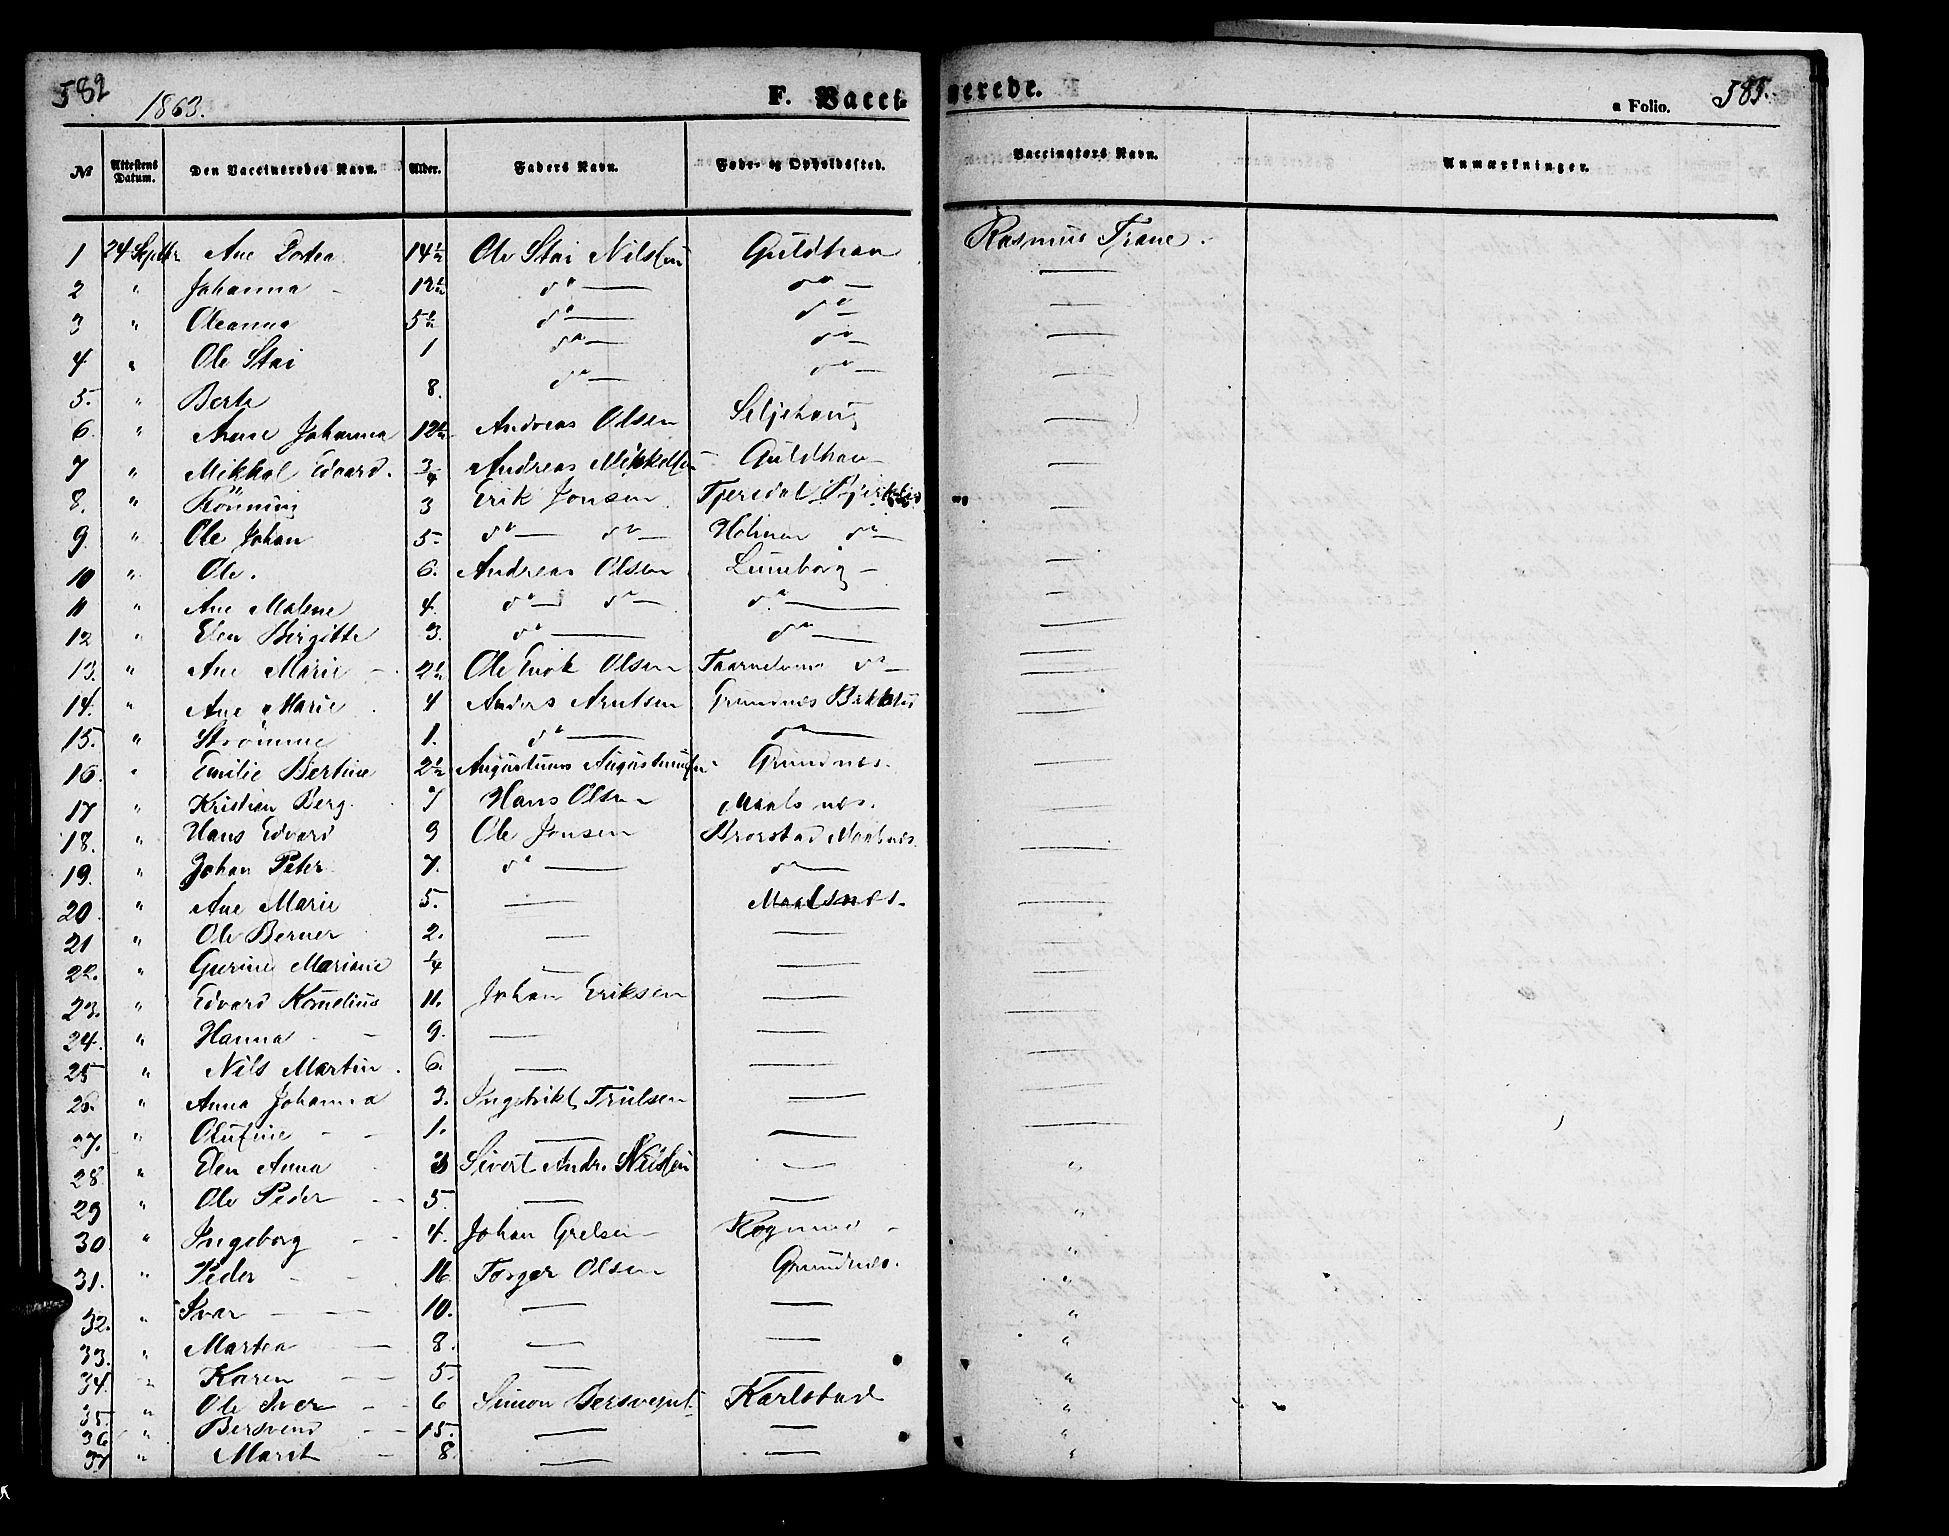 582
1863.
F. Vacci-
nerede.
a Folio. 585.
№ Attestens Datum. Den Vaccineredes Navn. Alder. Faders Navn. Føde- og Opholdssted. Vaccinators Navn. Anmærkninger.
1 24 Septbr Ane Dortea 14½ Ole Stai Nilssen Guldhav Rasmus Trane.
2 " Johanna - 12½ do — do —
3 " Oleanna 5½ do — do —
4 " Ole Stai 1 do — do —
5. " Berte 8. do — do —
6. " Anne Johanna 12½ Andreas Olsen Seljehaug —
7 " Mikkal Edvard. ¾ Andreas Mikkelsen Guldhav —
8. " Rönning 3 Erik Jonsen —
9. " Ole Johan 5. do — do — Holmen do — —
10 " Ole. 6. Andreas Olsen Luneborg — —
11 " Ane Malene 4. do — do — do — —
12 " Elen Birgitte 3. do — do — —
13. " Ane Marie - 2½ Ole Erik Olsen do — —
14. " Ane Marie 4 Anders Arntsen Grundnes —
15. " Strömme 1. do — do — —
16. " Emilie Bertine 2½ Augustinus Augustinusen Grundnes. —
17 " Kristian Berg. 7 Hans Olsen Maalsnes. —
18. " Hans Edvard 9 Ole Jonsen Maalsnes. —
19. " Johan Peter 7. do — do — —
20 " Ane Marie 5. — Maalsnes. —
21 " Ole Berner 2. — — —
22. " Gurine Mariane ¼ — — —
23. " Edvard Kornelius 11. Johan Eriksen — —
24. " Hanna - 9. — — —
25 " Nils Martin. 6. — — —
26. " Anna Johanna 3. Ingebrikt Trulsen — —
27. " Olufine - - 1. — — —
28 " Elen Anna 3 Sivert Andr. Nilssen — "
29 " Ole Peder - - 5. — — "
30 " Ingeborg - - 4. Johan Grelsen — "
31. " Peder - - 16 Torger Olsen Grundnes. "
32. " Ivar - - - 10. — — "
33. " Marten - 8. — — "
34. " Karen - - 5. — — "
35. " Ole Iver - - 6 Simon Karlstad "
36 " Bersvend - - 15. — — "
37 " Marit - 8. — — "